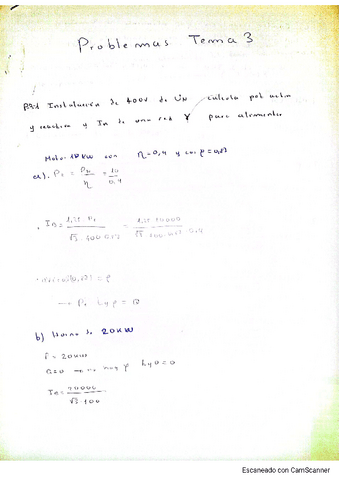 Problemas Tema 3
Instalación de 400V de UN calcula pot activa
y reactiva y IB de una red Y para alimentar
Motor 10 KW con η=0,4 y cos φ = 0,83
a). P1 = Pn/η = 10/0,4
IB = 1,25 · P1 / √3 · 400 · 0,83 = 1,25 · 10000 / √3 · 400 · 0,83 · 0,4
= φ
→ P1 · tg φ = Q
b) Horno de 20KW
P = 20KW
Q=0 → no hay φ tg 0 = 0
IB = 20000 / √3 · 400
Escaneado con CamScanner